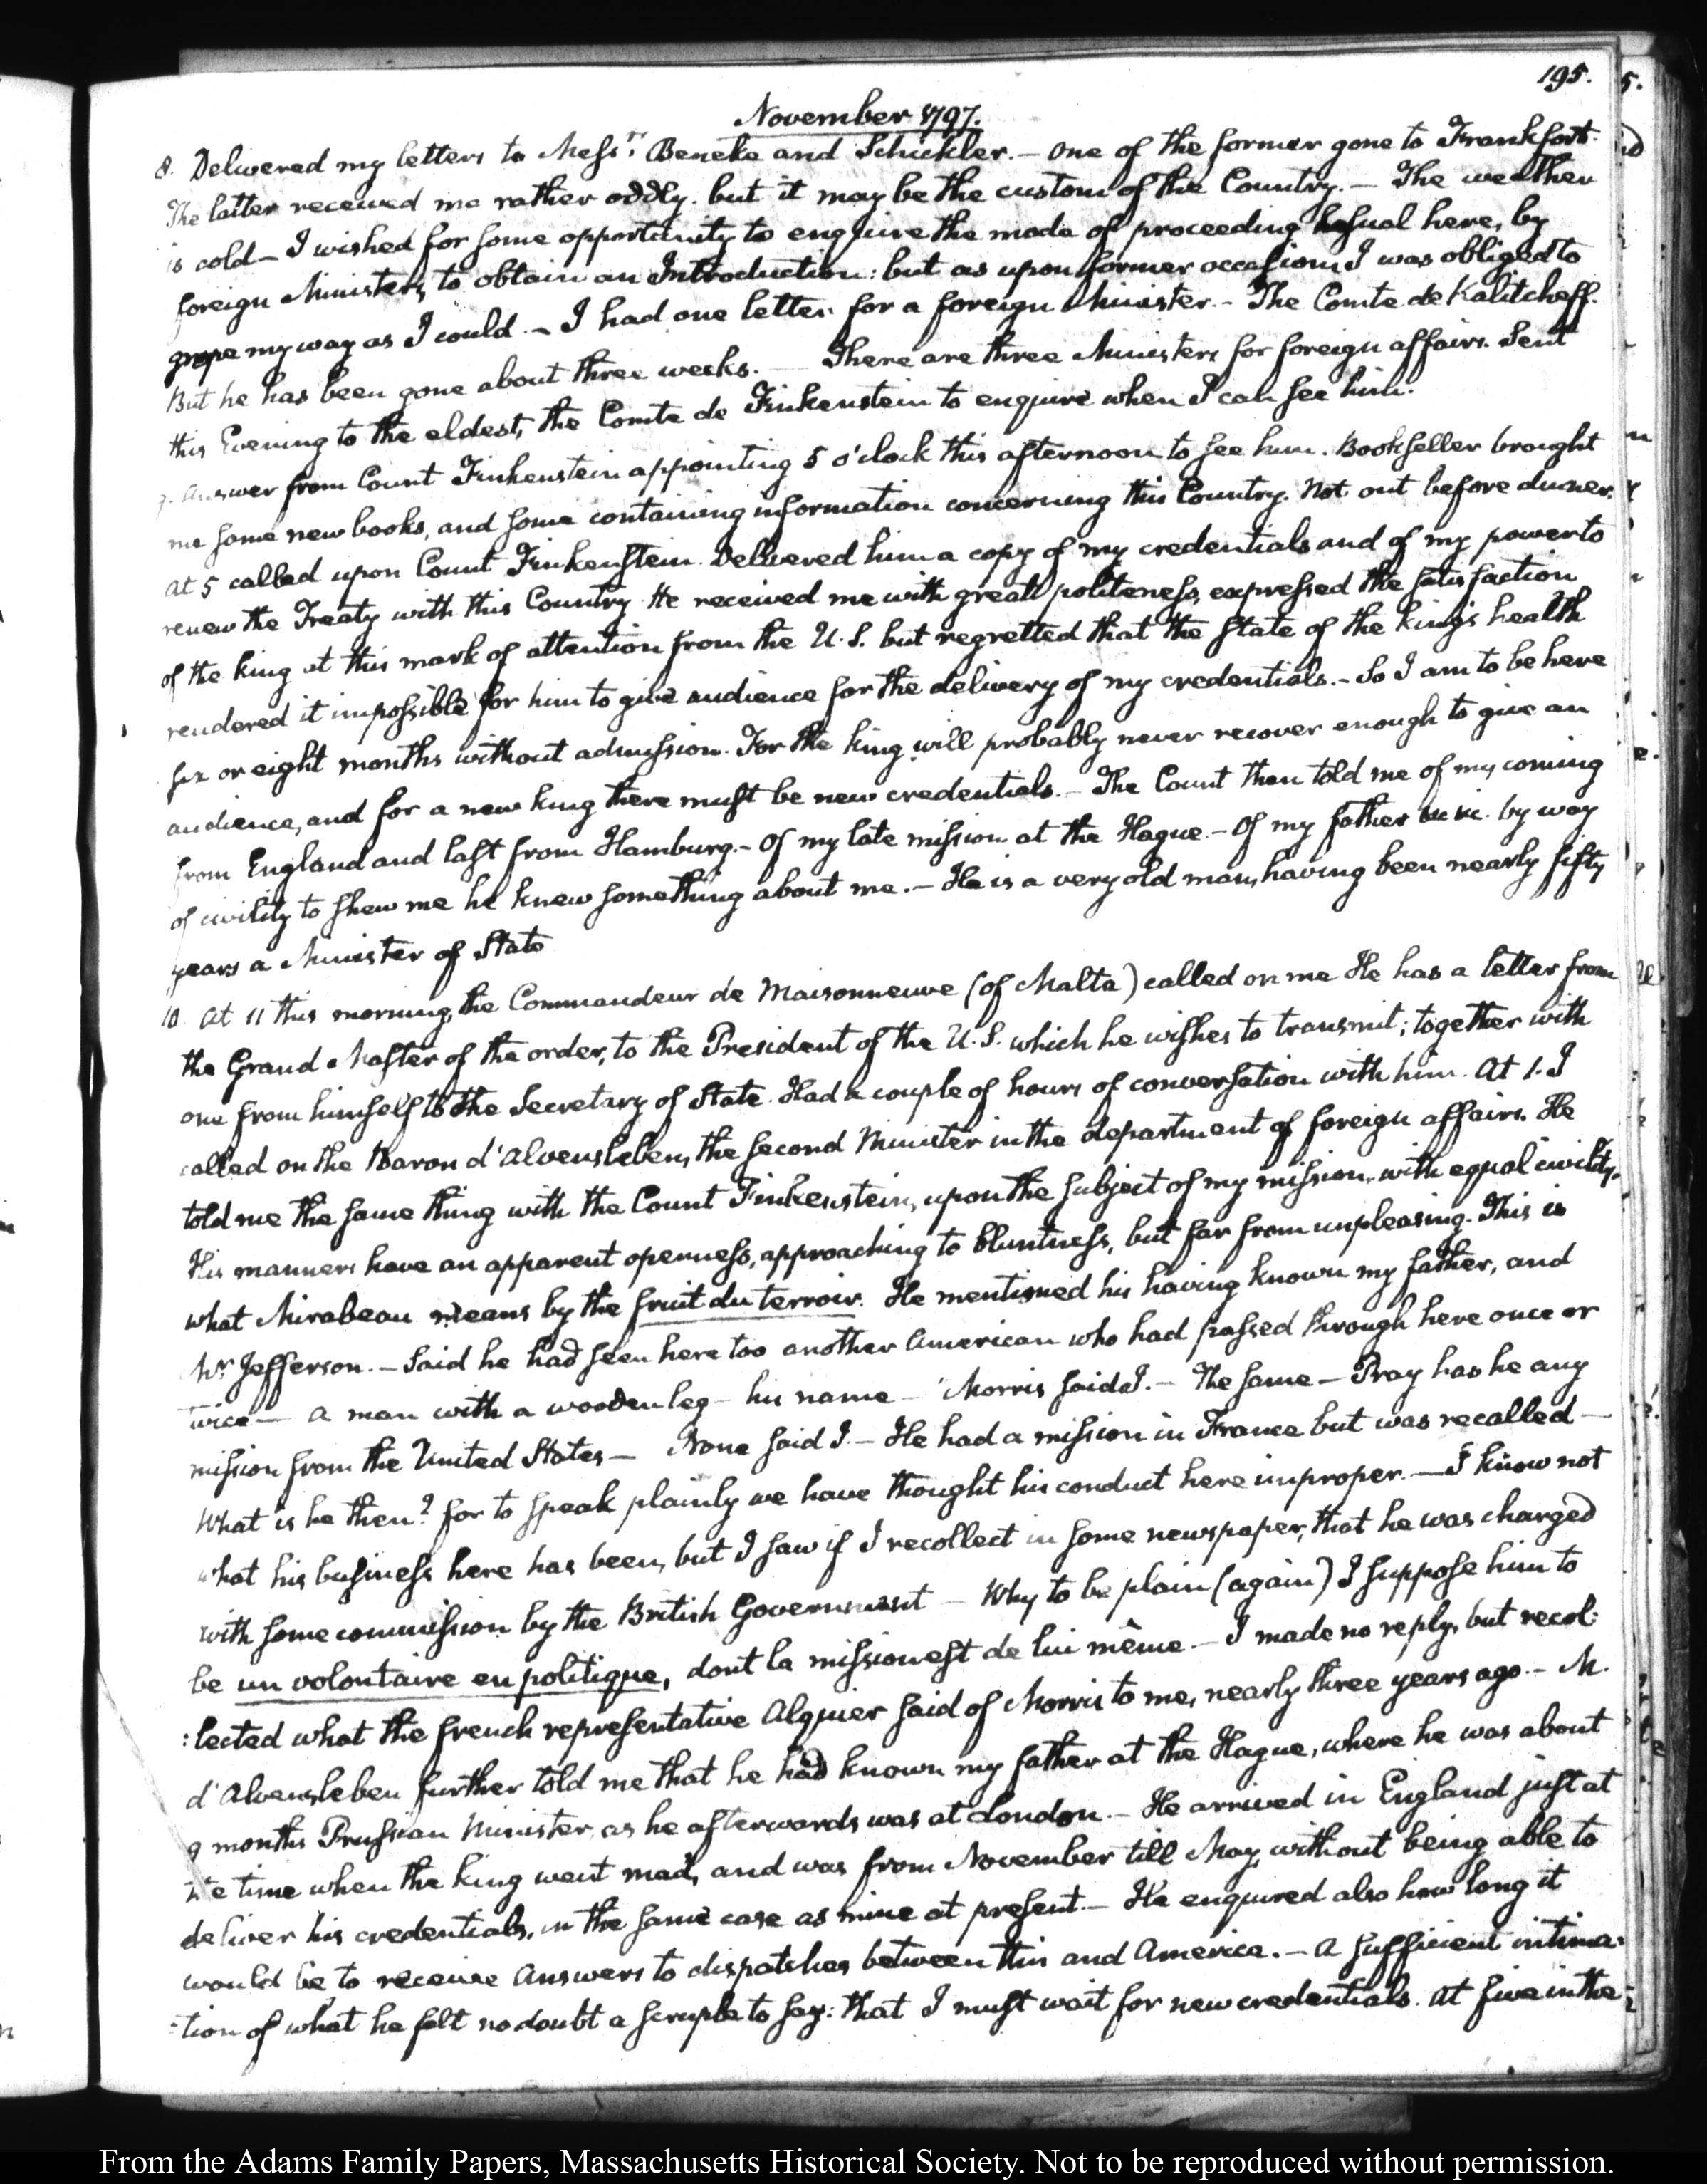 195.
November 1797.
8. Delivered my letters to Messrs. Beneke and Schickler. — one of the former gone to Frankfort.
The latter received me rather oddly. but it may be the custom of the Country. — The weather
is cold — I wished for some opportunity to enquire the mode of proceeding usual here, by
foreign Ministers, to obtain an Introduction: but as upon former occasions I was obliged to
grope my way as I could. — I had one letter for a foreign Minister. — The Comte de Kalitcheff.
But he has been gone about three weeks. — There are three Ministers for foreign affairs. Sent
this Evening to the eldest, the Comte de Finkenstein to enquire when I can see him.
9. Answer from Count Finkenstein appointing 5 o'clock this afternoon to see him. Bookseller brought
me some new books, and some containing information concerning this Country. Not out before dinner.
At 5 called upon Count Finkenstein. Delivered him a copy of my credentials and of my power to
renew the Treaty with this Country. He received me with great politeness, expressed the satisfaction
of the king at this mark of attention from the U.S. but regretted that the state of the king's health
rendered it impossible for him to give audience for the delivery of my credentials. — So I am to be here
six or eight months without admission. For the king will probably never recover enough to give an
audience, and for a new king there must be new credentials. — The Count then told me of my coming
from England and last from Hamburg. — Of my late mission at the Hague. — Of my father &c. &c. by way
of civility to shew me he knew something about me. — He is a very old man, having been nearly fifty
years a Minister of State
10. At 11 this morning, the Commandeur de Maisonneuve (of Malta) called on me He has a letter from
the Grand Master of the order, to the President of the U.S. which he wishes to transmit; together with
one from himself to the Secretary of State. Had a couple of hours of conversation with him. At 1. I
called on the Baron d'Alvensleben, the second Minister in the department of foreign affairs. He
told me the same thing with the Count Finkenstein, upon the subject of my mission, with equal civility.
His manners have an apparent openness, approaching to bluntness, but far from unpleasing. This is
what Mirabeau means by the fruit du terroir. He mentioned his having known my father, and
Mr. Jefferson. — Said he had seen here too another American who had passed through here once or
twice — a man with a wooden leg — his name — Morris said I. — The same — Pray has he any
mission from the United States — None said I. — He had a mission in France but was recalled —
What is he then? for to speak plainly we have thought his conduct here improper. — I know not
what his business here has been, but I saw if I recollect in some newspaper, that he was charged
with some commission by the British Government — Why to be plain (again) I suppose him to
be un volontaire en politique, dont la mission est de lui même. — I made no reply, but recol:
:lected what the french representative Alquier said of Morris to me, nearly three years ago. — M.
d'Alvensleben further told me that he had known my father at the Hague, where he was about
9 months Prussian Minister, as he afterwards was at London. — He arrived in England just at
the time when the king went mad, and was from November till May, without being able to
deliver his credentials, in the same case as mine at present. — He enquired also how long it
would be to receive answers to dispatches between this and America. — A sufficient intima:
:tion of what he felt no doubt a scruple to say: that I must wait for new credentials. At five in the
From the Adams Family Papers, Massachusetts Historical Society. Not to be reproduced without permission.